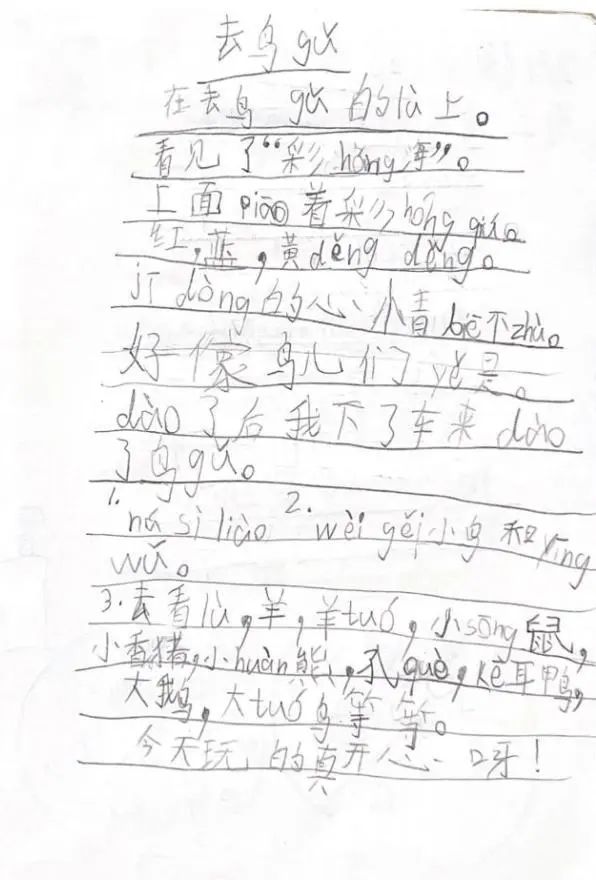 去鸟gǔ
在去鸟gǔ的lù上。
看见了“彩hóng海”。
上面piāo着彩hóng qiú。
红,蓝,黄děng děng。
jī dòng的心小青biē不zhù。
好像鸟儿们yě是。
dào了后我下了车来dào
了鸟gǔ。
1.ná sì liào 2.wèi gěi小鸟和yīng
wǔ。
3.去看lù,羊,羊tuó,小sōng鼠,
小香猪,小huàn熊,孔què,kē耳鸭,
大鹅,大tuó鸟等等。
今天玩的真开心呀!